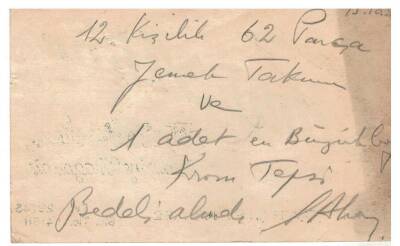 12. Kişilik 62 Parça
Yemek Takımı
ve
1 adet en Büyük boy
Krom Tepsi
Bedeli alındı